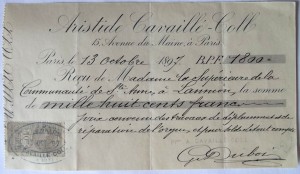 Aristide Cavaillé-Coll
15, Avenue du Maine, à Paris
Paris le 13 Octobre 1897 B.P.F. 1800=
Reçu de Madame la Supérieure de la
Communauté de Ste Anne, à Lannion, la somme
de mille huit cents francs
prix convenu des travaux de déplacement et de
réparation de l'orgue, et pour solde de tout compte